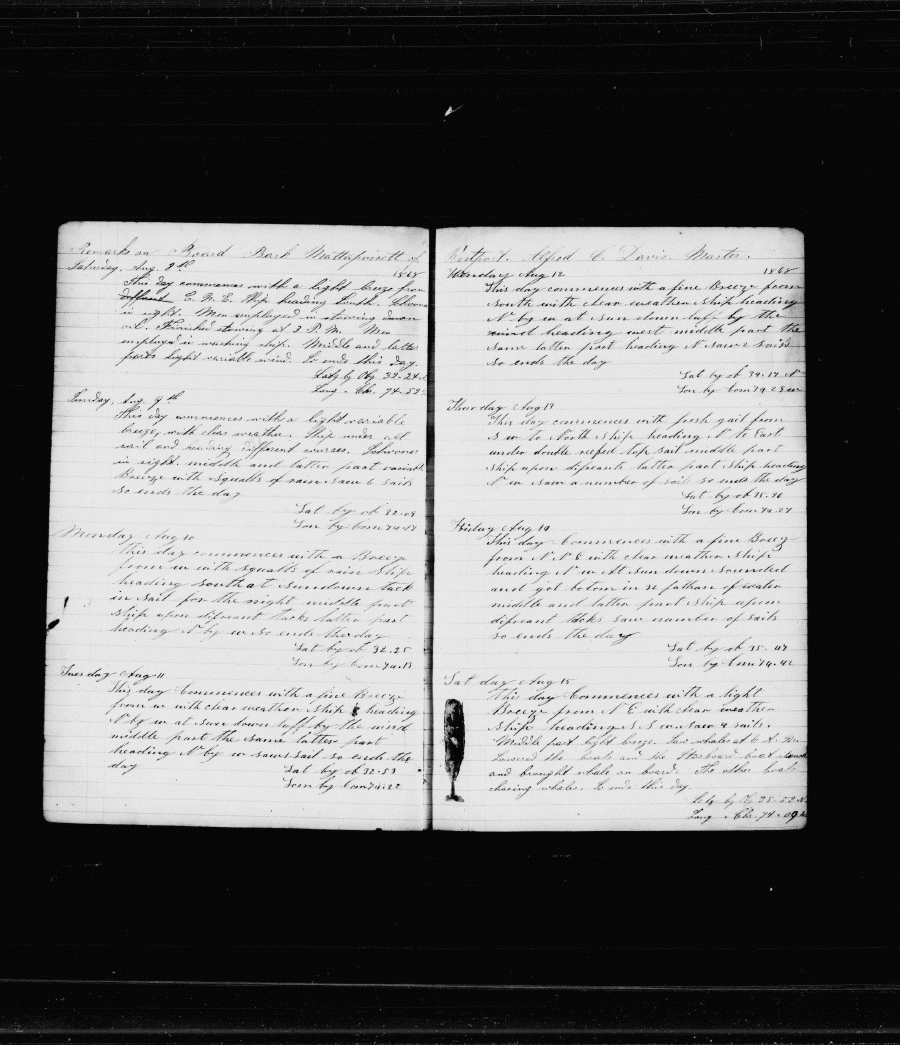 Remarks on Board Bark Mattapoisett of
Saturday, Aug. 8th 1868
This day commences with a light breeze from
different E. N. E. Ship heading South. Schooner
in sight. Men employed in stowing down
oil. Finished stowing at 3 P. M. Men
employed in washing ship. Middle and latter
parts light variable wind. So ends this day.
Laty by Obs 32.24
Long. Chr. 74.52
Sunday, Aug. 9th
This day commences with a light variable
breeze, with clear weather. Ship under all
sail and heading different courses. Schooner
in sight. middle and latter part variable
Breeze with squalls of rain saw 6 sails
so ends the day
Lat by ob 32.09
Lon by Crom 74.17
Monday Aug 10
This day commences with a Breeze
from w with squalls of rain ship
heading south at sundown tack
in sail for the night middle part
ship upon difireant tacks latter part
heading N by w so ends the day
Lat by ob 32.25
Lon by Crom 74.13
Tuesday Aug 11
This day Commences with a fine Breeze
from w with clear weather ship heading
N by w at sun down luff by the wind
middle part the same latter part
heading N by w saw 1 sail so ends the
day
Lat by ob 32.53
Lon by Crom 74.22
Westport. Alfred C. Davis Master.
Wenday Aug 12 1868
This day commences with a fine Breeze from
South with clear weather ship heading
N by w at sun down luff by the
wind heading west middle part the
same latter part heading N saw 2 sails
so ends the day
Lat by ob 34.17 N
Lon by Crom 74.23 w
Thurday Aug 13
This day commences with fresh gail from
S w to North ship heading N to East
under double reefed top sail middle part
ship upon difireants latter part ship heading
N w saw a number of sails so ends the day
Lat by ob 35.16
Lon by Crom 74.27
Friday Aug 14
This day Commences with a fine Breeze
from N N E with clear weather ship
heading N w At sun down sounded
and got botom in fatham of water
middle and latter part ship upon
difireant tacks saw number of sails
so ends the day
Lat by ob 35.47
Lon by Crom 74.42
Satday Aug 15
This day Commences with a light
Breeze from N E with clear weather
ship heading S S w saw 4 sails.
Middle part light breeze. Saw whales at 6 A. M.
Lowered the boats and the Starboard boat struck
and brought whale on board. The other boats
chasing whales. So ends this day.
Laty by Obs 35.52 N
Long. Chr. 74.09 W